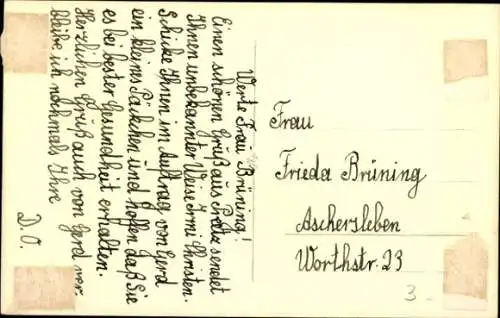 Werte Frau Brüning!
Einen schönen Gruß aus sendet
Ihnen unbekannter Weise Irmi Christen.
Schicke Ihnen im Auftrag von Gerd
ein kleines Päckchen und hoffen daß Sie
es bei bester Gesundheit erhalten.
Herzlichen Gruß auch von Gerd ver-
bleibe ich nochmals Ihre
D.O.
Frau
Frieda Brüning
Aschersleben
Worthstr. 23
3.-